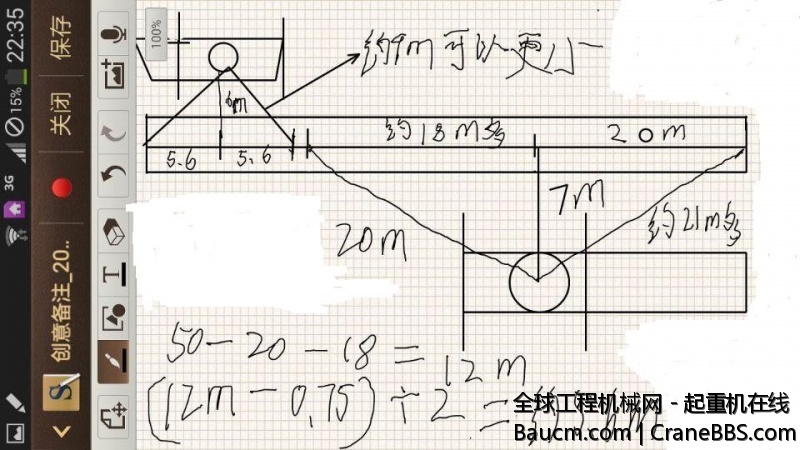 22:35
15%
3G
保存
关闭
创意备注_20..
100%
约9m可以更小一
6m
5.6
5.6
约18m多
20m
7m
20m
约21m多
50-20-18=12m
(12m-0.75)÷2=约5.6m
全球工程机械网 - 起重机在线
Baucm.com | CraneBBS.com